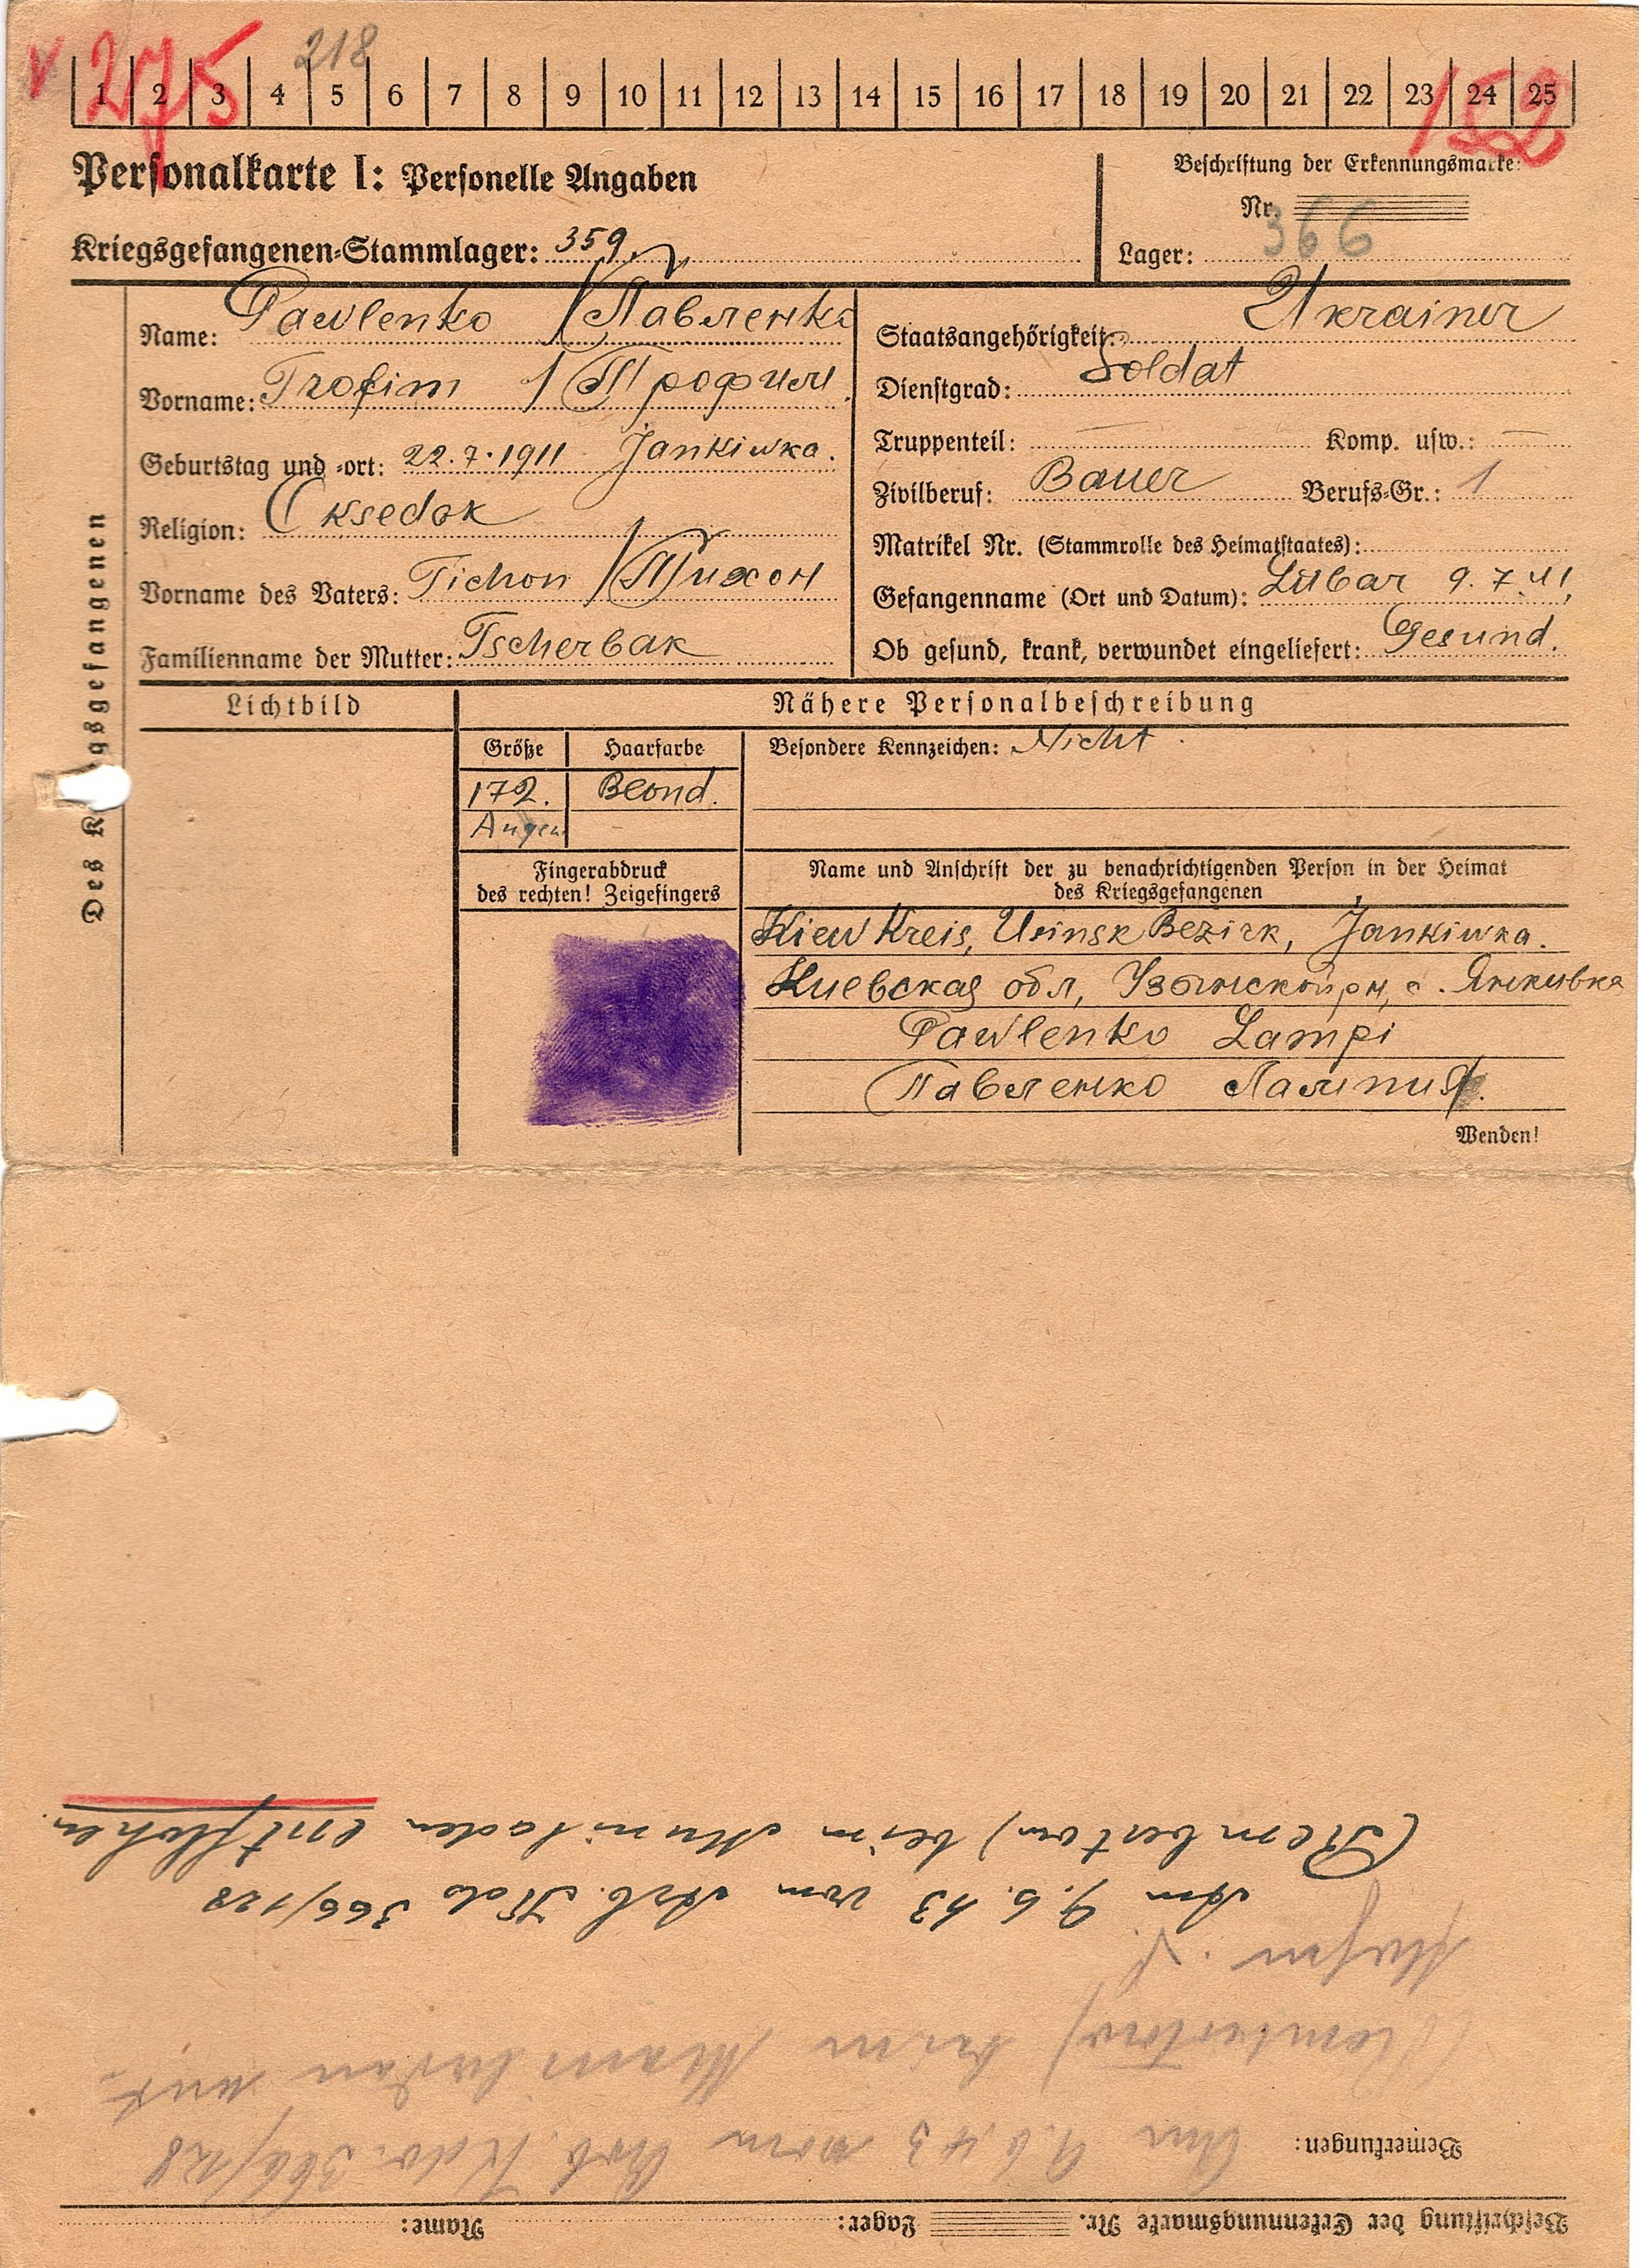 v 275 218 152
1 2 3 4 5 6 7 8 9 10 11 12 13 14 15 16 17 18 19 20 21 22 23 24 25
Personalkarte I: Personelle Angaben
Kriegsgefangenen-Stammlager: 359
Beschriftung der Erkennungsmarke:
Nr.
366
Lager:
Des K gsgefangenen
Name: Pawlenko / Павленко
Vorname: Trofim / Трофим
Geburtstag und -ort: 22.7.1911 Jankiwka.
Religion: Oksedok
Vorname des Vaters: Tichon / Тихон
Familienname der Mutter: Tscherbak
Staatsangehörigkeit: Ukrainer
Dienstgrad: Soldat
Truppenteil: — Komp. usw.: —
Zivilberuf: Bauer Berufs-Gr.: 1
Matrikel Nr. (Stammrolle des Heimatstaates):
Gefangenname (Ort und Datum): Lübar 9.7.41.
Ob gesund, krank, verwundet eingeliefert: Gesund.
Lichtbild
Nähere Personalbeschreibung
Größe Haarfarbe
172. Blond.
Augen
Besondere Kennzeichen: Nicht
Fingerabdruck
des rechten! Zeigefingers
Name und Anschrift der zu benachrichtigenden Person in der Heimat
des Kriegsgefangenen
Kiew Kreis, Usinsk Bezirk, Jankiwka.
Киевская обл, Узынской рн, с. Янкивка
Pawlenko Lampi
Павленко Лампия.
Wenden!
Beschriftung der Erkennungsmarke Nr. Lager: Name:
Bemerkungen: Am 9.6.43 vom Arb. Kdo. 366/128
(Rembertow) beim Muni laden ent-
flohen.
Am 9.6.43 vom Arb. Kdo 366/128
(Rembertow) beim Muni laden entflohen.